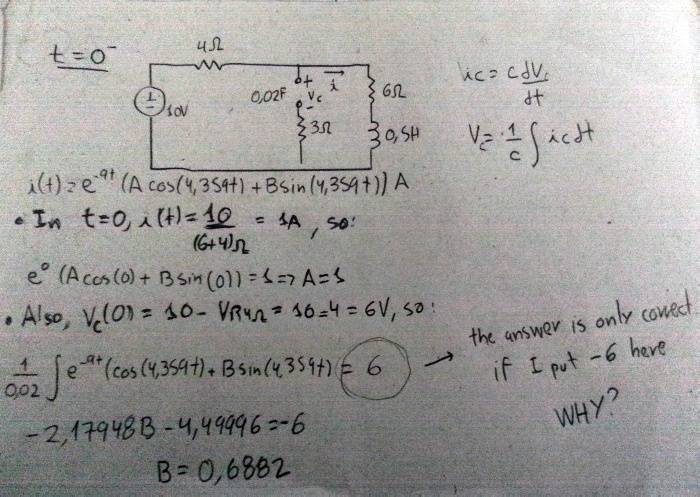 t=0⁻
4Ω
10V
0,02F
+
Vc
-
i
3Ω
6Ω
0,5H
ic = c dVc/dt
Vc = 1/c ∫ ic dt
i(t) = e^-9t (A cos(4,359t) + B sin(4,359t)) A
• In t=0, i(t) = 10/(6+4)Ω = 1A, so:
e⁰ (A cos(0) + B sin(0)) = 1 => A=1
• Also, Vc(0) = 10 - VR4Ω = 10-4 = 6V, so:
1/0,02 ∫ e^-9t (cos(4,359t) + B sin(4,359t) = 6
→ the answer is only correct
if I put -6 here
WHY?
-2,17948B - 4,49996 = -6
B = 0,6882